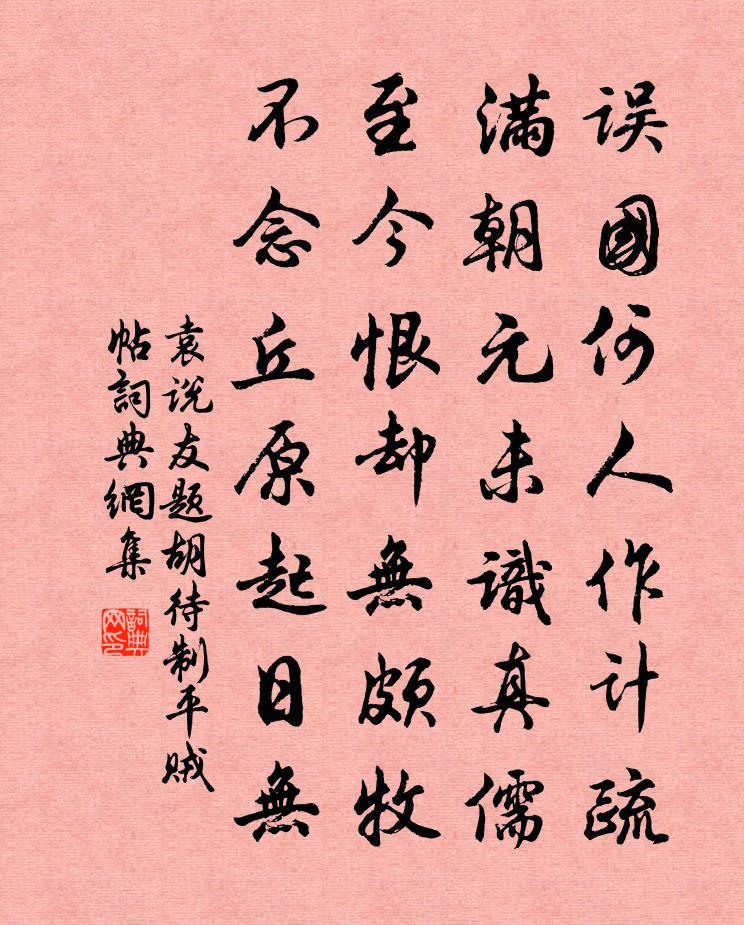 误國何人作计疏
滿朝元未識真儒
至今恨却無頗牧
不念丘原起日無
袁说友题胡待制平贼
帖詞典網集
詞典网印